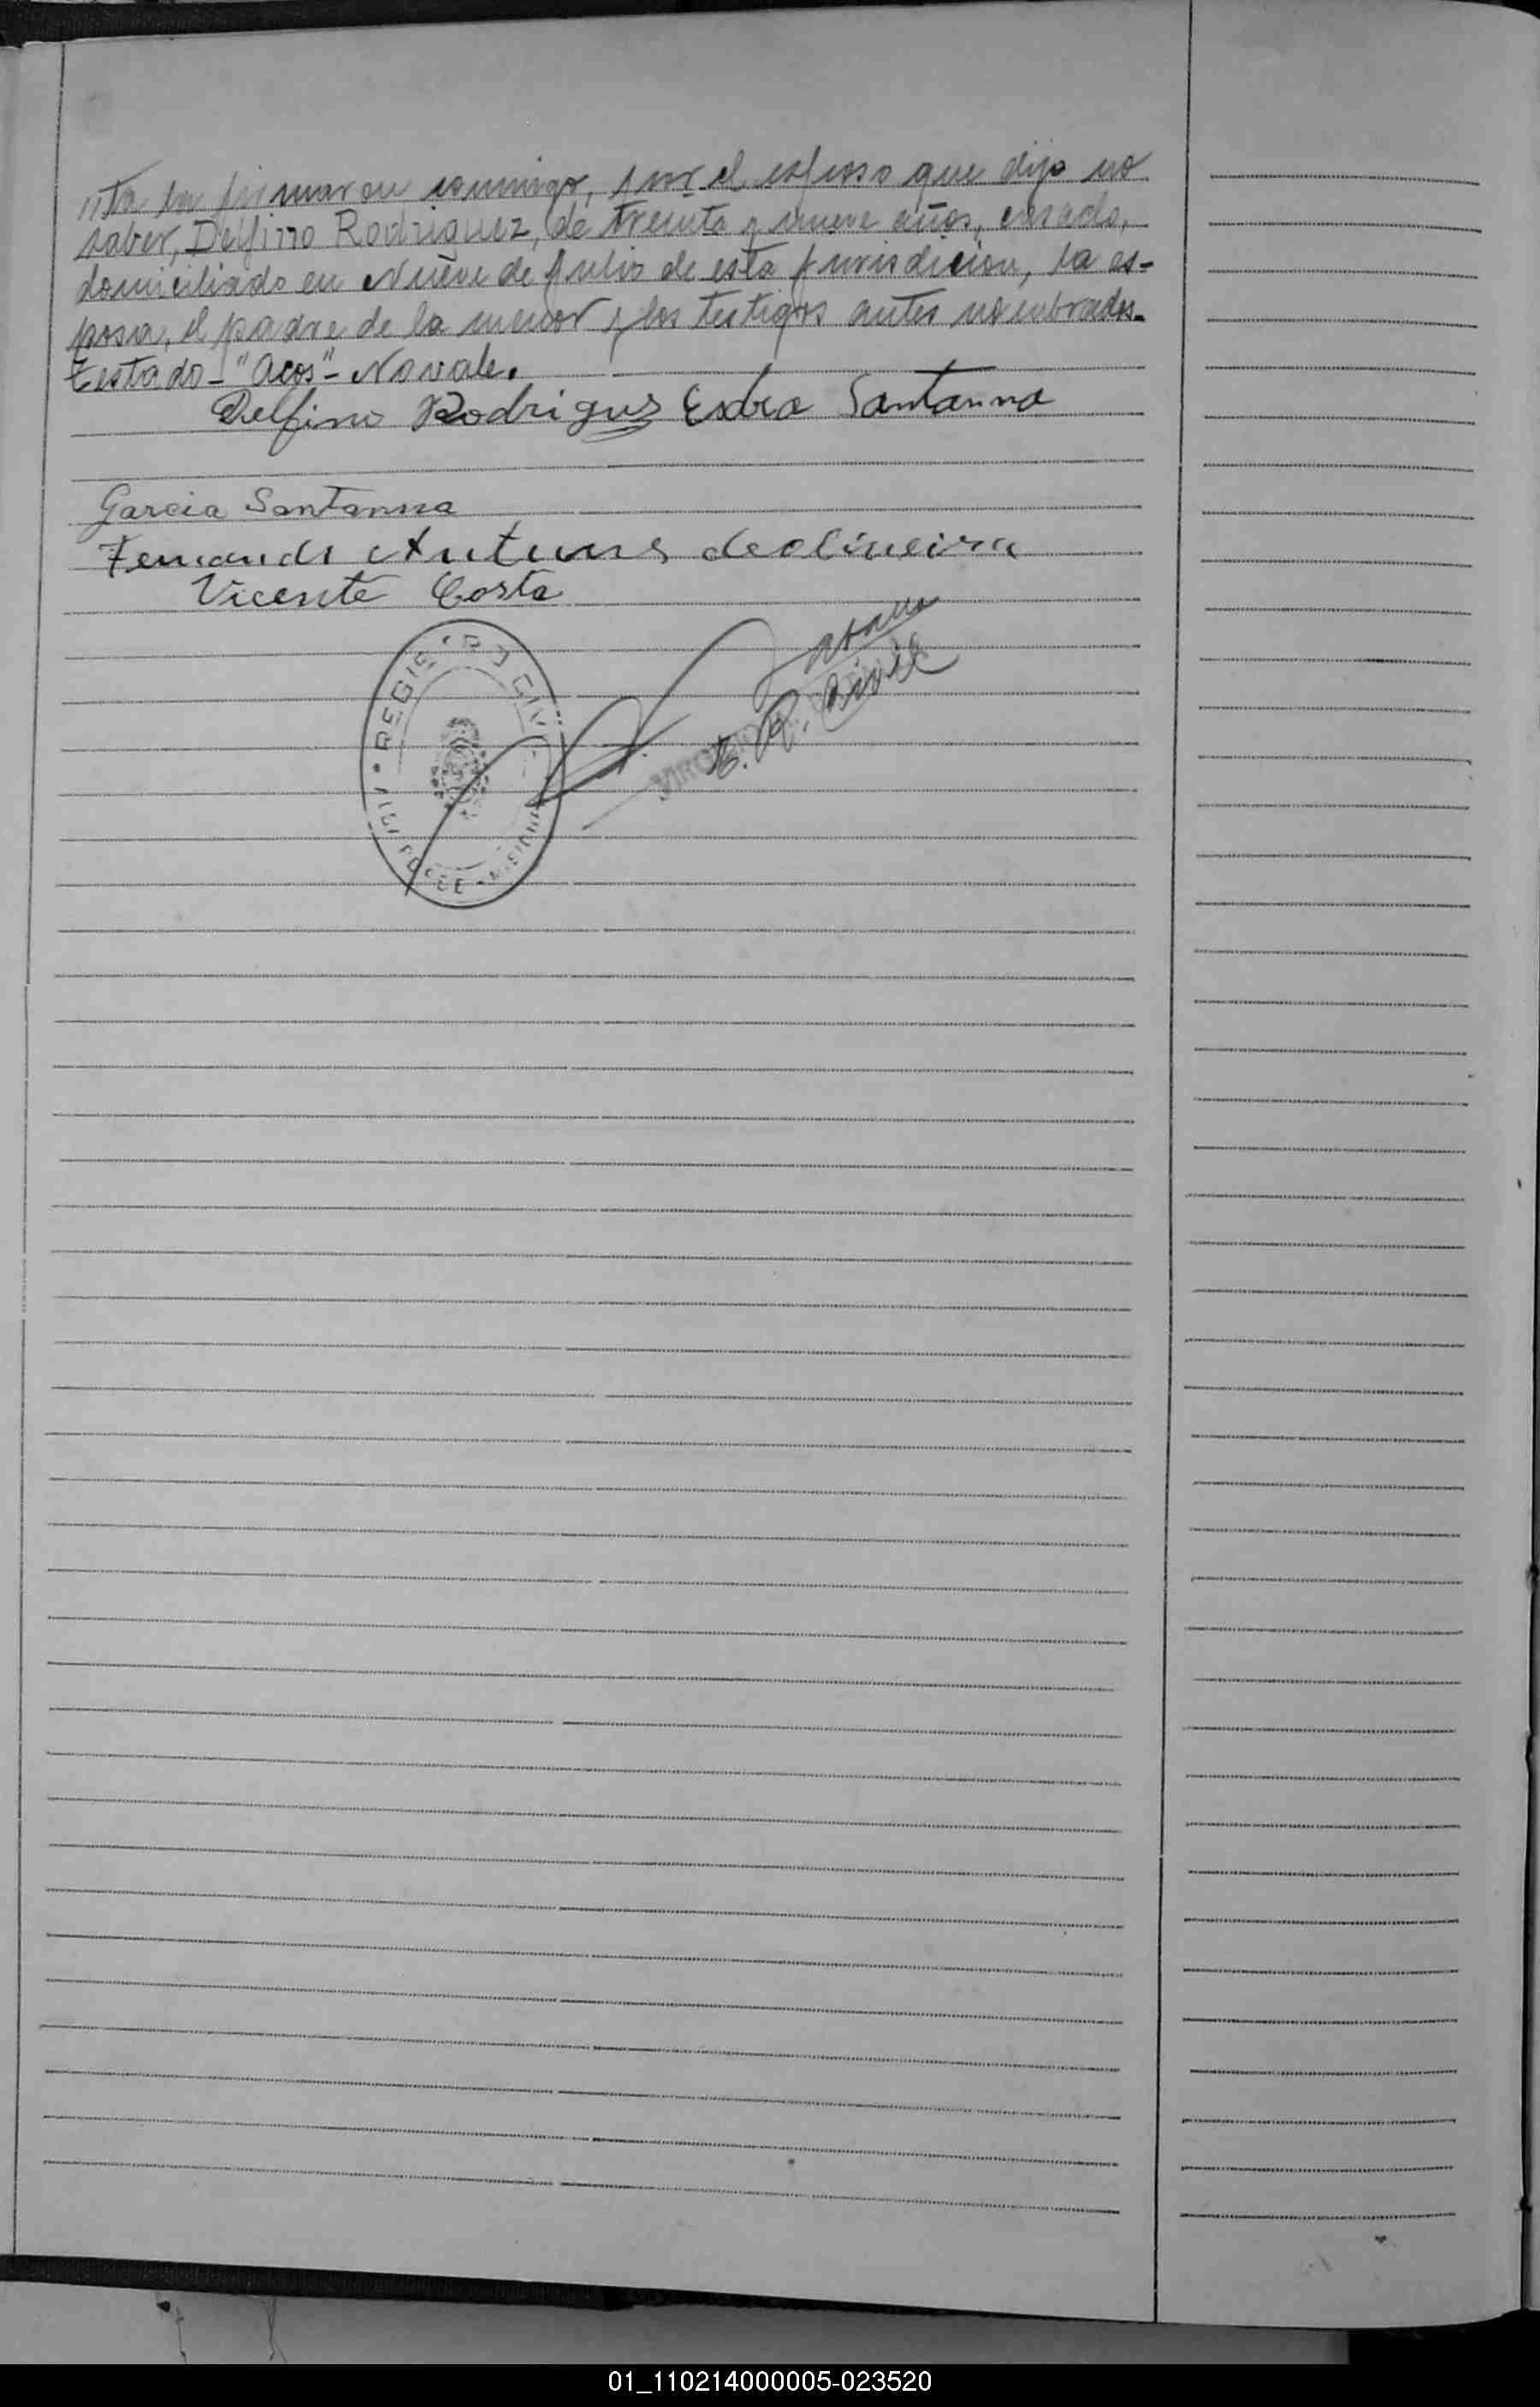 "ta la firmaron conmigo, por el esposo que dijo no
saber, Delfino Rodriguez, de treinta y nueve años, casado,
domiciliado en Nueve de Julio de esta jurisdicion, la es-
posa, el padre de la menor y los testigos antes nombrados.
Testado - "acos" - No vale.
Delfino Rodrigus Santanna
Garcia Santanna
Fernando Antunes deolineira
Vicente Costa
REGISTRO CIVIL
E. R. Civil
01_110214000005-023520